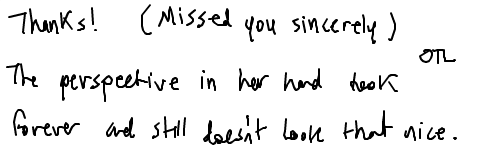 Thanks! (Missed you sincerely)
The perspective in her hand took OTL
forever and still doesn't look that nice.